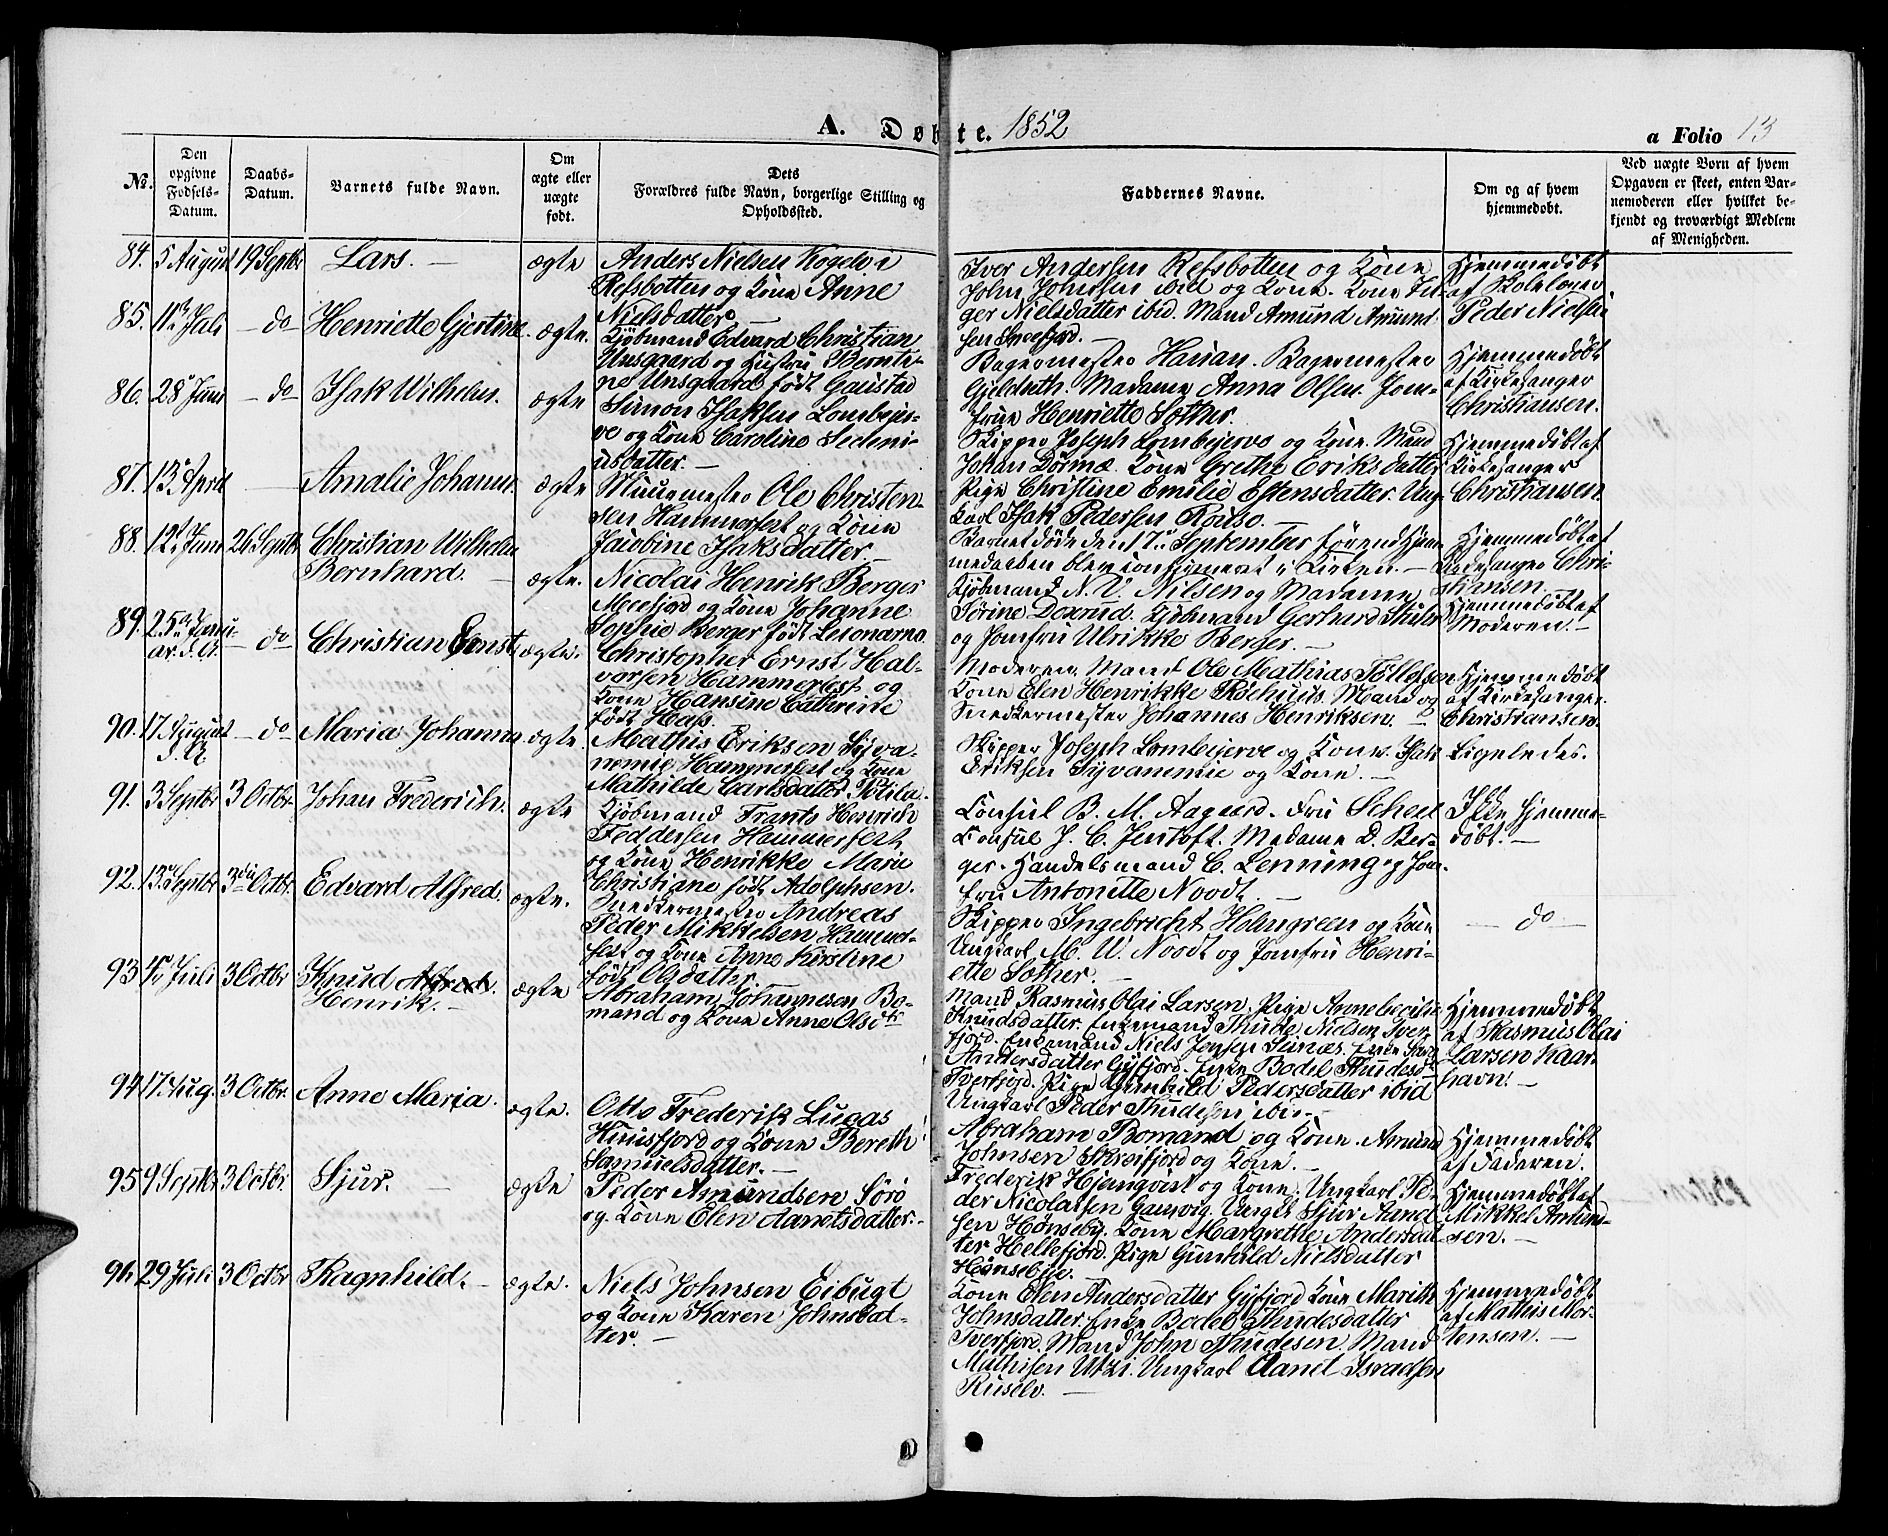 A. Døbte. 1852
a Folio 13
No.
Den opgivne Fødsels-Datum.
Daabs-Datum.
Barnets fulde Navn.
Om ægte eller uægte født.
Dets Forældres fulde Navn, borgerlige Stilling og Opholdssted.
Faddernes Navne.
Om og af hvem hjemmedøbt.
Ved uægte Børn af hvem Opgaven er skeet, enten Barnemoderen eller hvilket bekjendt og troværdigt Medlem af Menigheden.
84. 5 August 19 Septbr Lars. — ægte
Anders Nielsen Kogelv i
Refsbotten og Kone Anne
Nielsdatter
Iver Andersen Refsbotten og Kone
John Johnsen ibid og Kone. Kone
ger Nielsdatter ibid. Mand Amund Amund-
sen Sneefjord. —
Hjemmedøbt
af Skolelærer
Peder Nielsen
85. 11te Juli — do — Henriette Gjertine. ægte.
Kjøbmand Edvard Christian
Unsgaard og Hustru Bernti-
ne Unsgaard født Gaustad
Bagermester Hauan. Bagermester
Gjeldseth. Madame Anna Olsen. Jom-
frue Henriette Sother.
Hjemmedøbt
af Kirkesanger
Christiansen.
86. 28de Juni — do — Isak Wilhelm. ægte
Simon Isaksen Lombejer-
ve og Kone Caroline Sedeni-
usdatter. —
Skipper Joseph Lombejervo og Kone. Mand
Johan Dörmæ. Kone Grethe Eriksdatter
Pige Christine Emilie Estensdatter. Ung-
karl Isak Pedersen Rouso. —
Hjemmedøbt af
Kirkesanger
Christiansen
87. 13de April — Amalie Johanne. ægte
Muurmester Ole Christen-
sen Hammerfest og Kone
Jacobine Isaksdatter —
Barnet døde den 17de September førend Hjem-
medaaben blev confirmeret i Kirken. —
Hjemmedøbt af
Kirkesanger Chri-
stiansen.
88. 12te Juni 26 Septbr Christian Wilhelm
Bernhard. — ægte.
Nicolai Henrik Berger
Meefjord og Kone Johanne
Sophie Berger født Leionarna
Kjøbmand N. V. Nilsen og Madame
Sørine Doxrud. Kjøbmand Gerhard Stuhr
og Jomfru Ulrikke Berger. —
Hjemmedøbt af
Moderen. —
89. 25de Janu-
ar d. A. — do Christian Ernst ægte.
Christopher Ernst Hal-
vorsen Hammerfest og
Kone Hansine Cathrine
født Hass.
Moderen. Mand Ole Mathias Tøllefsen
Kone Elen Henrikke Rochuus. Mand og
Snedkermester Johannes Henriksen. —
Hjemmedøbt
af Kirkesanger
Christiansen.
90. 17 August
d. A. — do — Maria Johanna ægte.
Mathis Eriksen Syva-
nemie Hammerfest og Kone
Mathilde Carlsdatter
Skipper Joseph Lombejerve og Kone. Isak
Eriksen Syvanmie og Kone. —
Ligeledes.
91. 3 Septbr 3 Octbr. Johan Frederich. ægte
Kjöbmand Frants Henrich
Feddersen Hammerfest
og Kone Henrikke Marie
Christiane født Adolphsen.
Consul B. M. Aagaard. Fru Scheel
Consul J. C. Jentoft. Madame D. Ber-
ger. Handelsmand C. Lenning og Jom-
fru Antonette Noodt. —
Ikke hjemme-
døbt. —
92. 13de Septbr 3die Octbr. Edvard Alfred. ægte.
Snedkermester Andreas
Peder Mikkelsen Hammer-
fest og Kone Anne Kirstine
født Olsdatter.
Skipper Ingebrecht Holmgreen og Kone
Ungkarl M. W. Noodt og Jomfru Henri-
ette Sother.
— do —
93 Juli 3 Octbr Knud Alfred.
Henrik. — ægte
Abraham Johannesen Bo-
mand og Kone Anne Olsdtr
Mand Rasmus Olai Larsen, Pige Anne
Knudsdatter. Enkemand Thude Nielsen Tver-
fjord. Enkemand Niels Jensen Seines. Enke
Andersdatter Gyfjord. Enke Bodel Thudesdtr
Tverfjord. Pige Gunhild Pedersdatter ibid
Ungkarl Peder Thudesen ibid. —
Hjemmedøbt
af Rasmus Olai
Larsen Kaar-
havn. —
94 17 Aug. 3 Octbr. Anne Maria. ægte.
Otto Frederik Lucas
Kiuusfjord og Kone Bereth
Samuelsdatter. —
Abraham Bomand og Kone. Amund
Johnsen Skreifjord og Kone. —
Hjemmedøbt
af Faderen.
95 9 Septbr 3 Octbr. Sjur. — ægte
Peder Amundsen Sørø
og Kone Elen Aanetsdatter. —
Frederik Hjemqvist og Kone. Ungkarl Pe-
der Nicolaisen Gamvig. Ungk. Sjur Aand-
sen Hønseby. Kone Margrethe Andersdat-
ter Hellefjord. Pige Gunhild Nielsdatter
Hønsebye.
Hjemmedøbt af
Mikkel Amund-
sen. —
96. 29 Juli 3 Octbr Ragnhild. — ægte.
Niels Johnsen Eibugt
og Kone Karen Johnsdat-
ter. —
Kone Elen Andersdatter Gyfjord Kone Marith
Johnsdatter. Enke Bodel Thudesdatter
Tverfjord. Mand John Thudesen. Mand
Mathisen Utzi. Ungkarl Aanet Isradsen
Ruselv. —
Hjemmedøbt
af Mathis Mor-
tensen. —